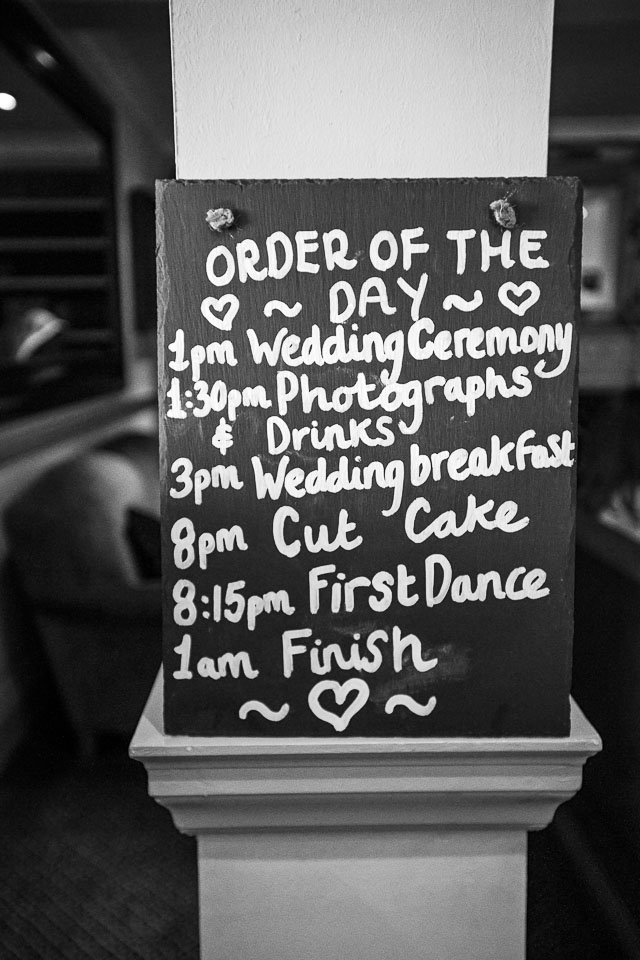 ORDER OF THE
♡ ~ DAY ~ ♡
1pm Wedding Ceremony
1:30pm Photographs
& Drinks
3pm Wedding breakfast
8pm Cut Cake
8:15pm First Dance
1am Finish
~ ♡ ~